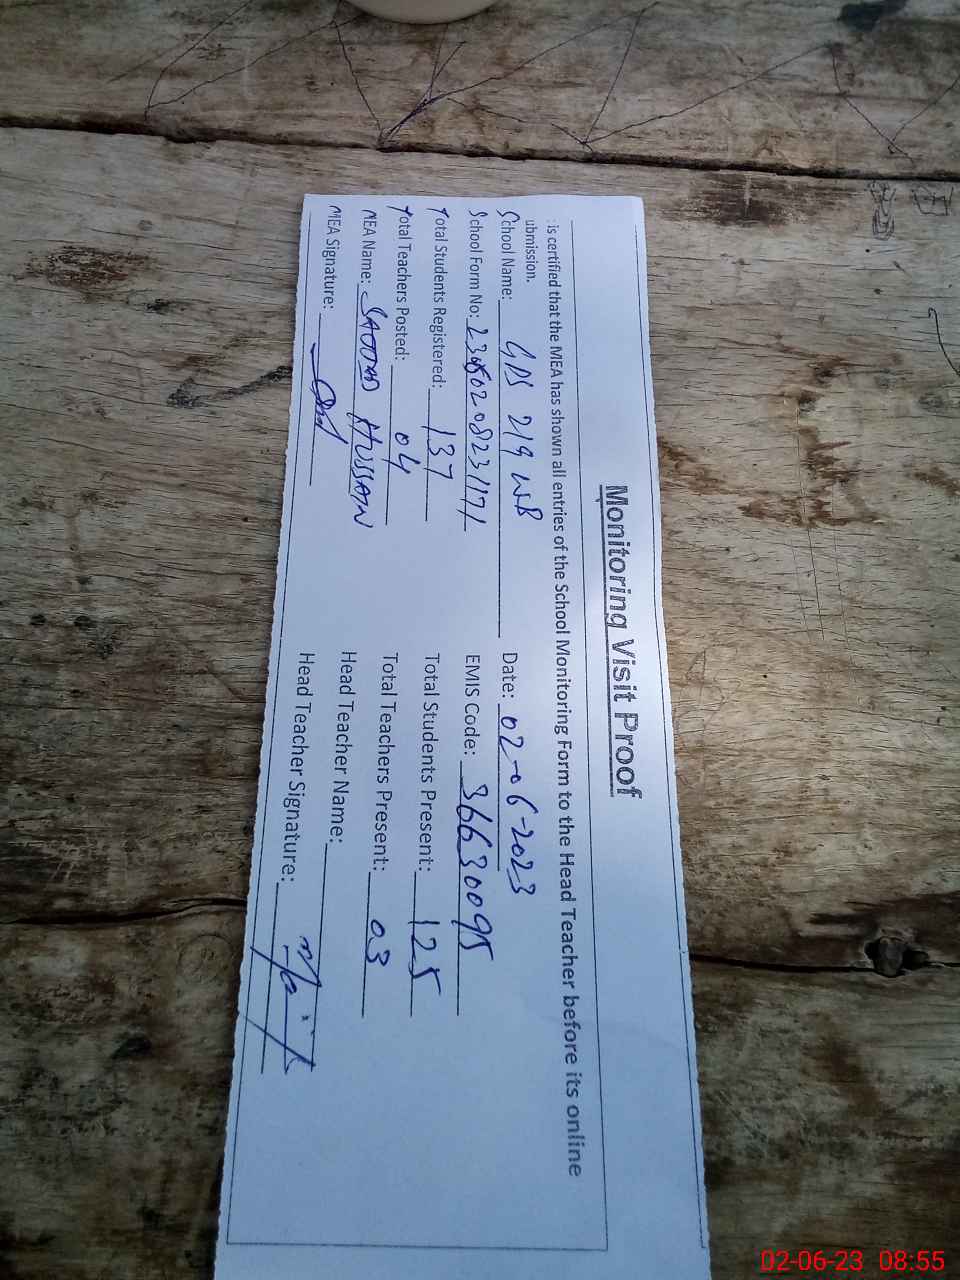 Monitoring Visit Proof
: is certified that the MEA has shown all entries of the School Monitoring Form to the Head Teacher before its online
ubmission.
School Name: GPS 219 WB Date: 02-06-2023
School Form No: EMIS Code: 36630095
Total Students Registered: 137 Total Students Present: 125
Total Teachers Posted: 04 Total Teachers Present: 03
MEA Name: SADDAM HUSSAIN Head Teacher Name:
MEA Signature: Head Teacher Signature:
02-06-23 08:55